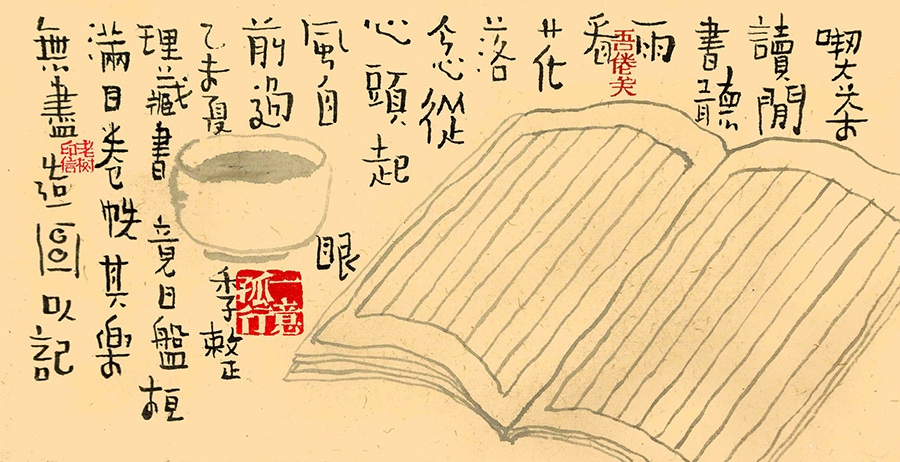 喫茶
讀閒
書聽
雨
看
花
落
念從
心頭起
風自眼
前過
乙未夏季整
理藏書竟日盤桓
滿目卷帙其樂
無盡造圖以記
吾倦
一意孤行
老树印信